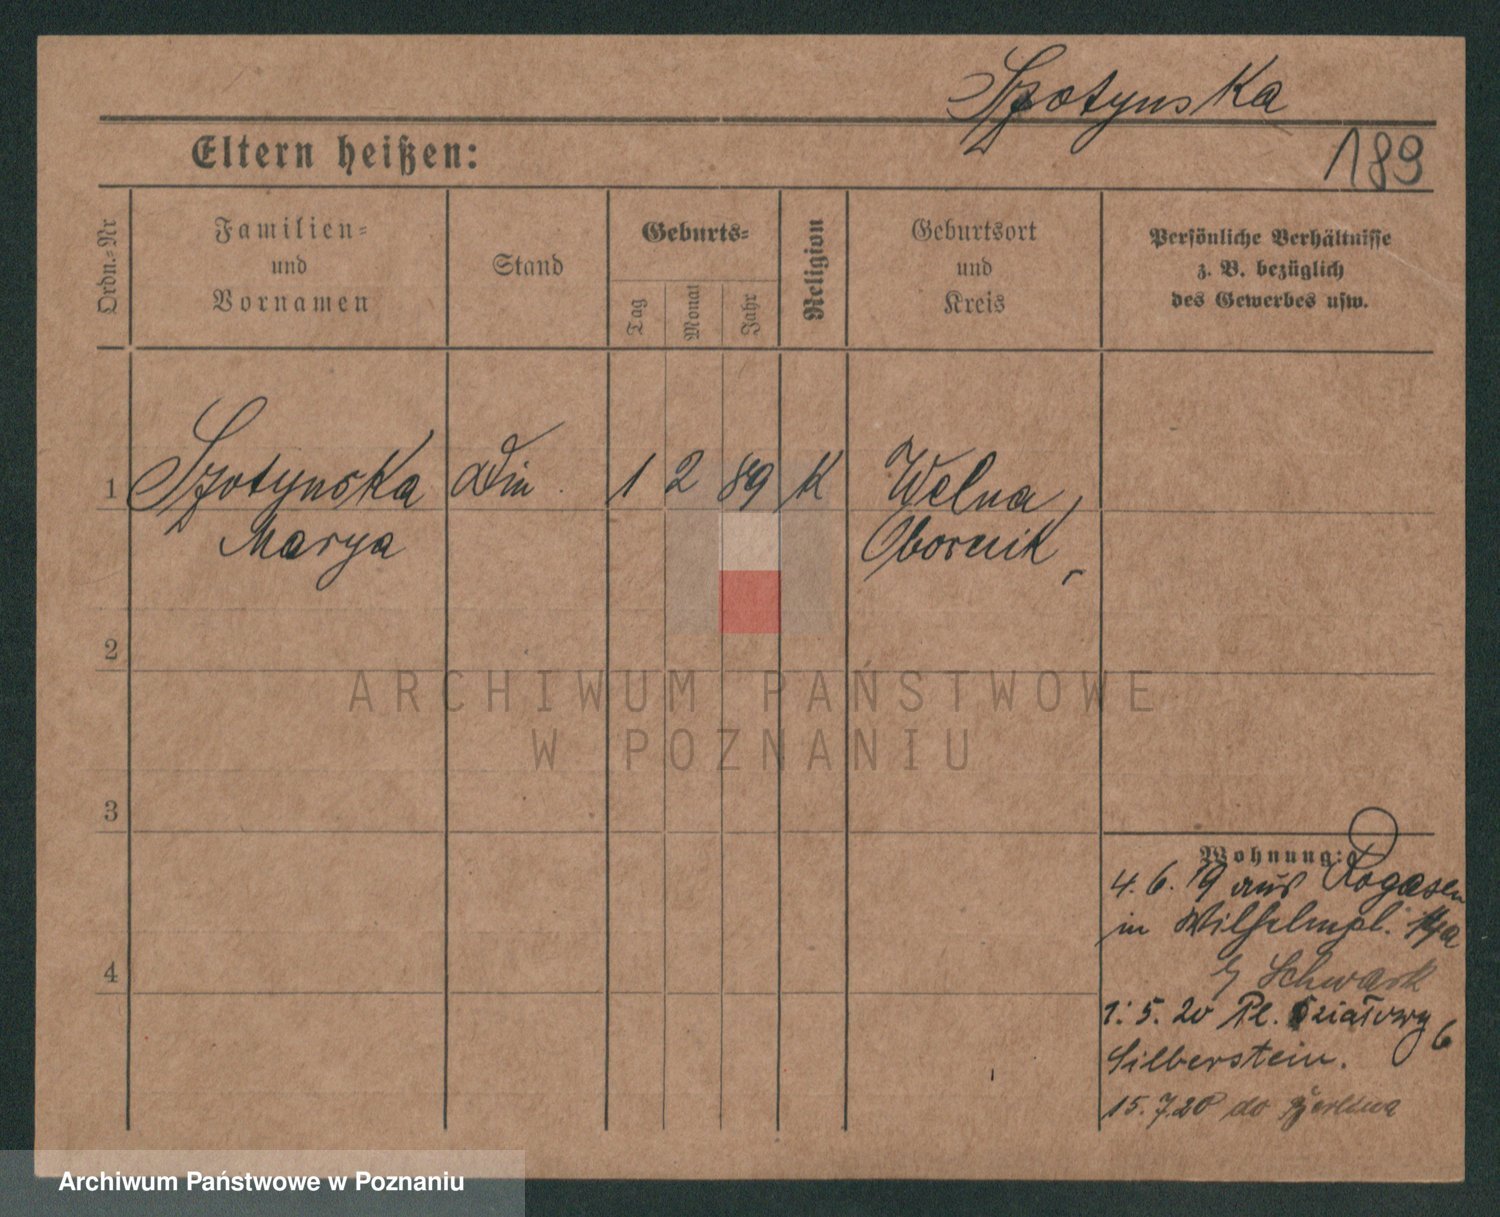 Szotynska
189
Eltern heißen:
Ordn.-Nr
Familien-
und
Vornamen
Stand
Geburts-
Tag
Monat
Jahr
Religion
Geburtsort
und
Kreis
Persönliche Verhältnisse
z. B. bezüglich
des Gewerbes usw.
1 Szotynska Din. 1 2 89 K Welna,
Marya Obornik,
2
3
4
ARCHIWUM PAŃSTWOWE
W POZNANIU
Wohnung:
4. 6. 19 aus Rogasen
in Wilhelmpl.
Schwark
1. 5. 20 Pl. Działowy 6
Silberstein.
15.7.20 do Berlina
Archiwum Państwowe w Poznaniu